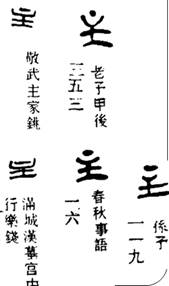 主
老子甲後
三五三
主
敬武主家銚
主
係子
一一九
主
春秋事語
一六
主
滿城漢墓宫中
行樂錢